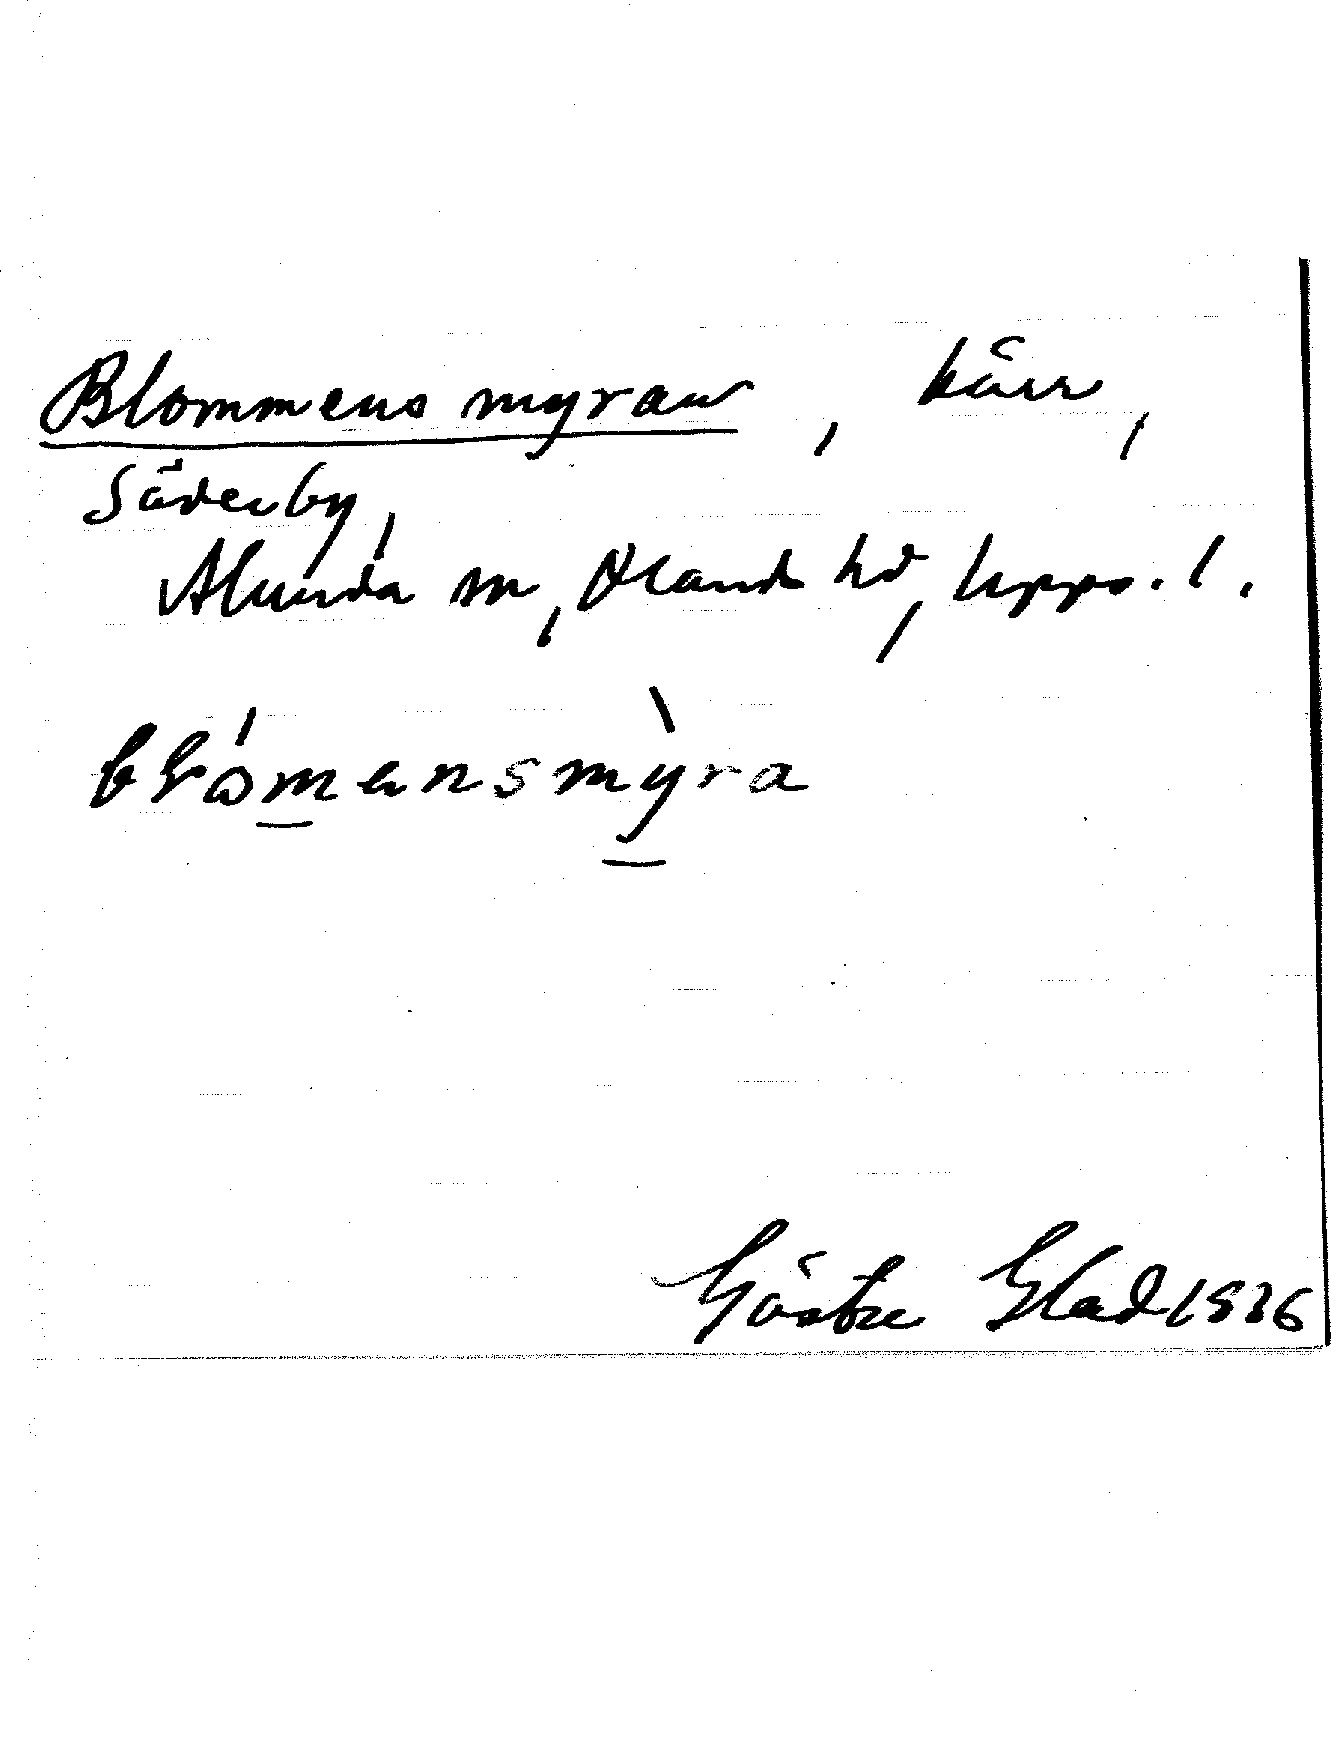 Blommens myran, kärr,
Söderby,
Alunda sn, Oland hd, Upps. l.
blomensmyra
Gösta Glad 1936